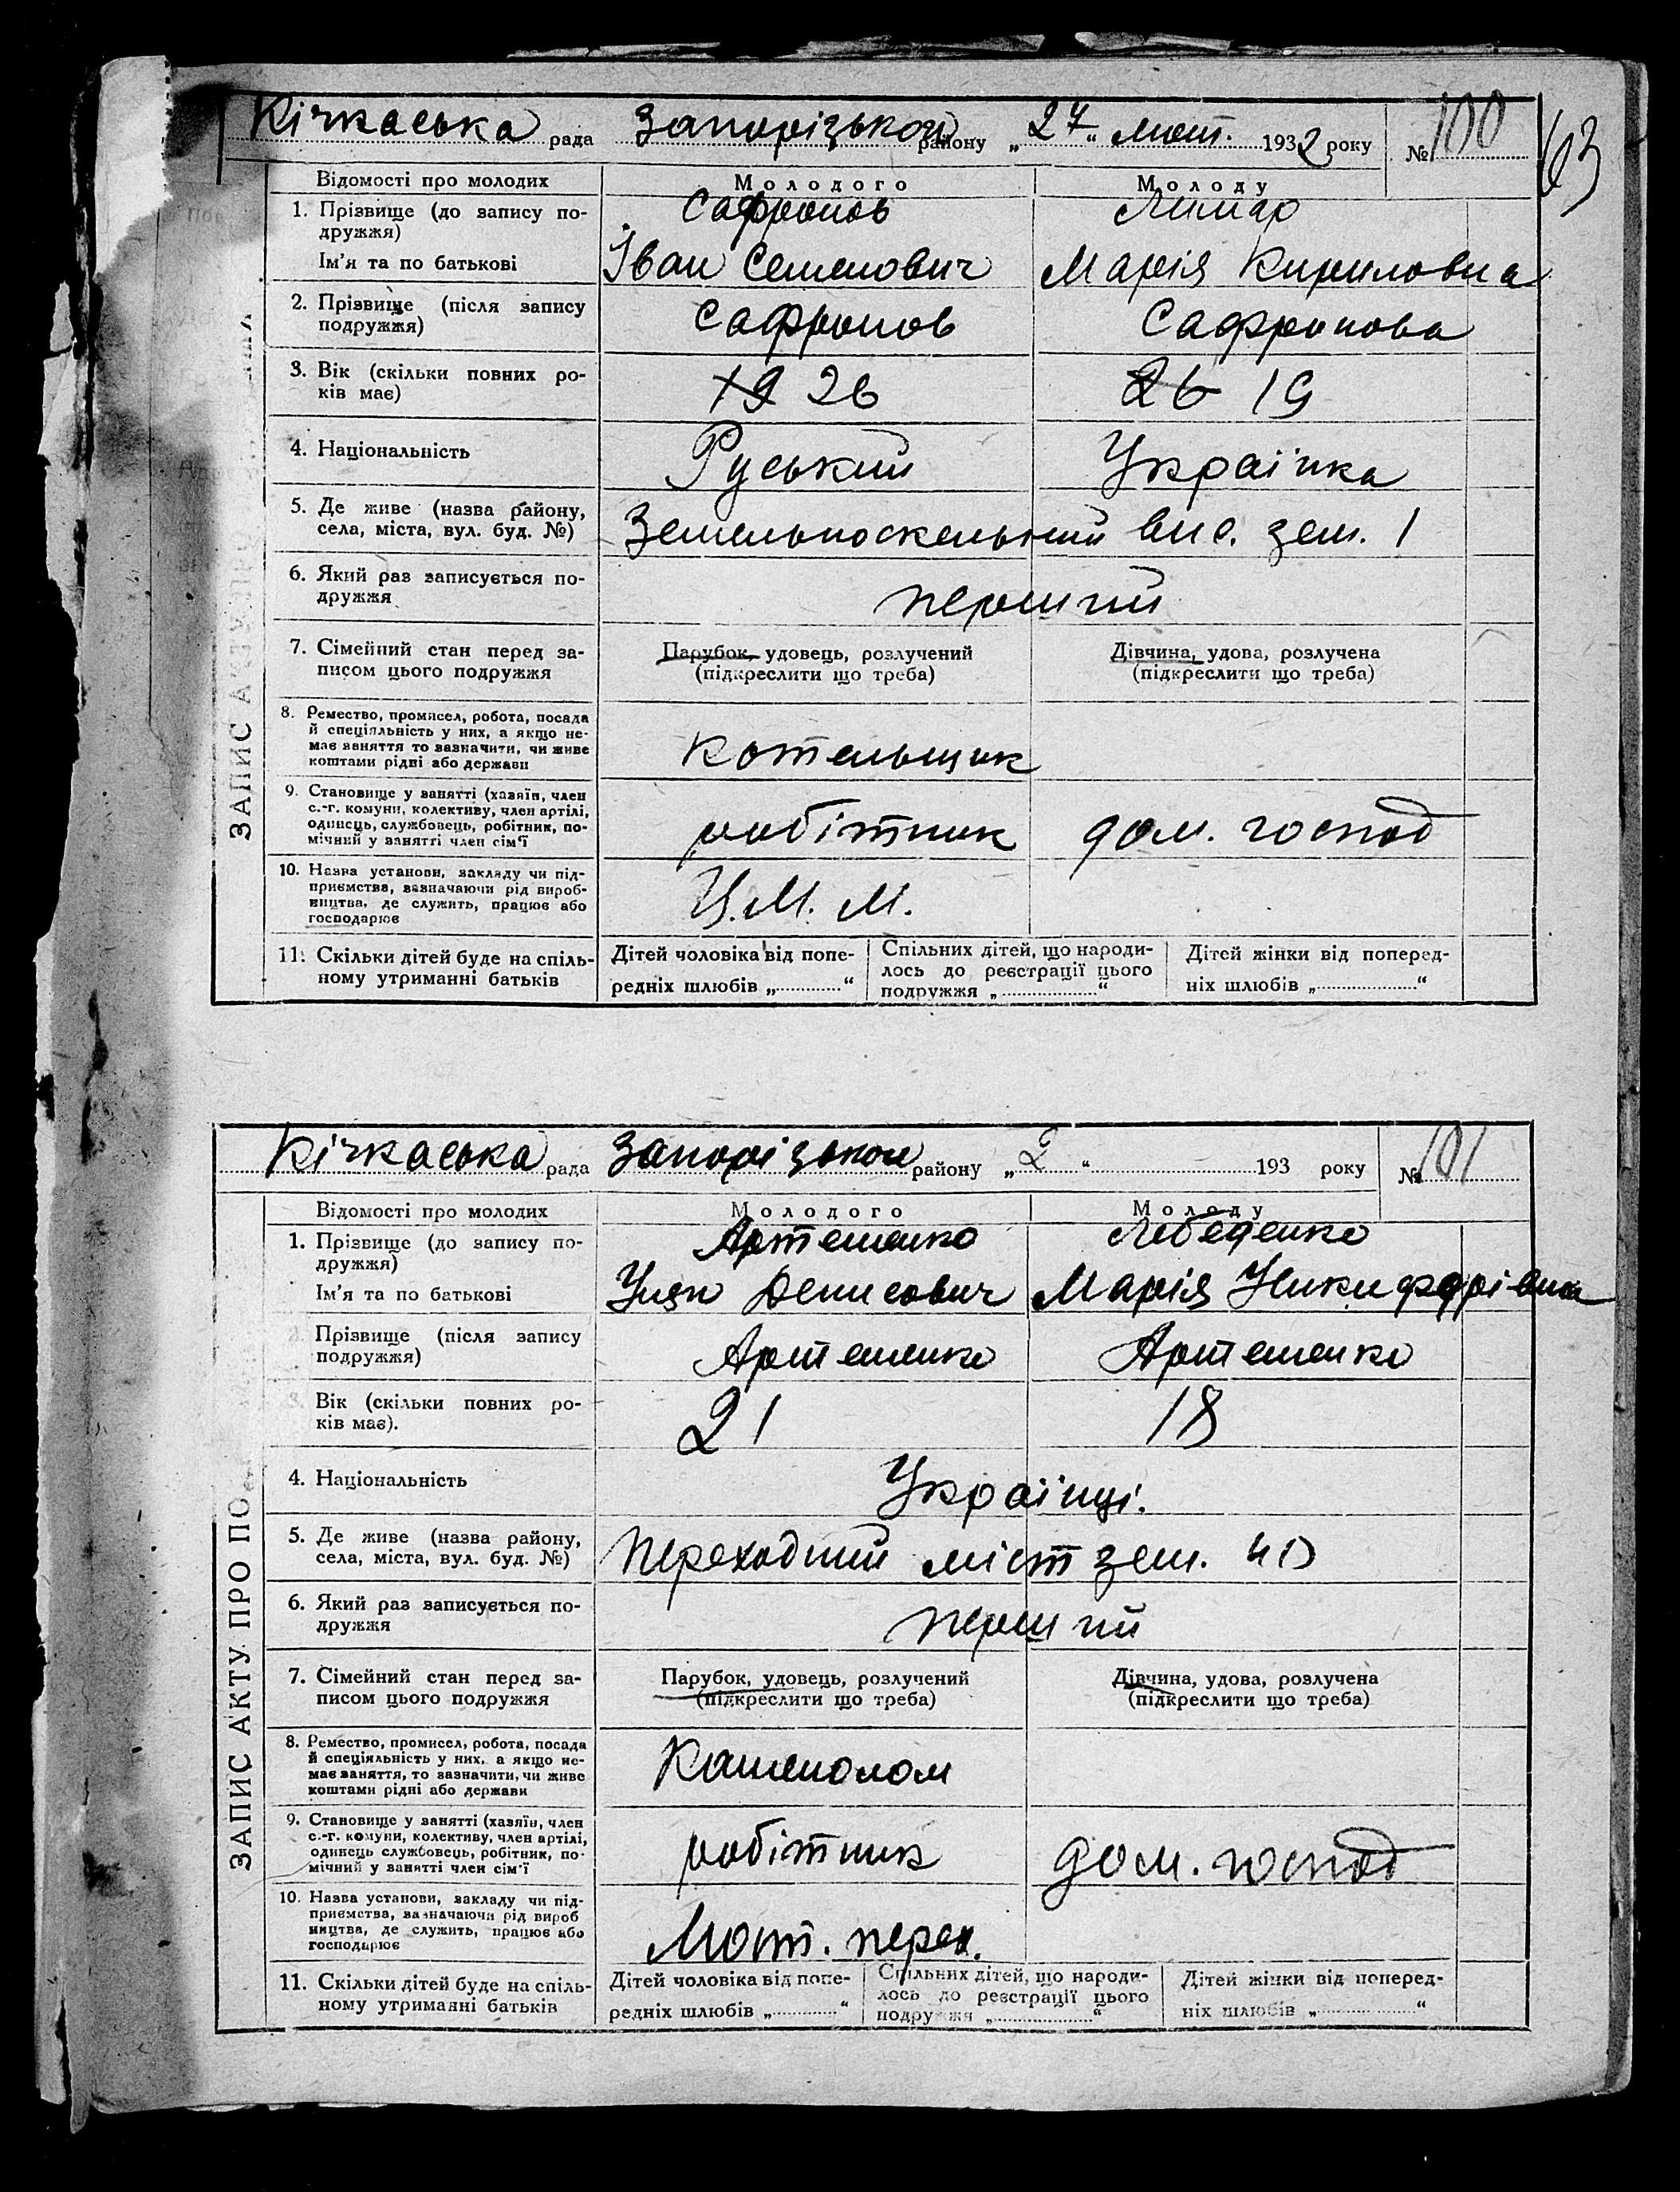 Кічкаська рада Запорізького району „27“ лют. 1932 року №100
163
Відомості про молодих Молодого Молоду
1. Прізвище (до запису по- Сафронов Лимар
дружжя)
Ім'я та по батькові Іван Семенович Марія Кириловна
2. Прізвище (після запису Сафронов Сафронова
подружжя)
3. Вік (скільки повних ро- 19 26 26 19
ків має)
4. Національність Руський Українка
5. Де живе (назва району, Земельноскельний вис. зем. 1
села, міста, вул. буд. №)
6. Який раз записується по- перший
дружжя
7. Сімейний стан перед за- Парубок, удовець, розлучений Дівчина, удова, розлучена
писом цього подружжя (підкреслити що треба) (підкреслити що треба)
8. Ремество, промисел, робота, посада
й спеціяльність у них, а якщо не-
має заняття то зазначити, чи живе котельщик
коштами рідні або держави
9. Становище у занятті (хазяїн, член
с.-г. комуни, колективу, член артілі,
одинець, службовець, робітник, по- робітник дом. господ
мічний у занятті член сім'ї
10. Назва установи, закладу чи під-
приємства, зазначаючи рід вироб-
ництва, де служить, працює або Ц.М.М.
господарює
11. Скільки дітей буде на спіль- Дітей чоловіка від попе- Спільних дітей, що народи- Дітей жінки від поперед-
ному утриманні батьків редніх шлюбів „ “ лось до реєстрації цього ніх шлюбів „ “
подружжя „ “
ЗАПИС АКТУ
Кічкаська рада Запорізької району „2“ 193 року №101
Відомості про молодих Молодого Молоду
1. Прізвище (до запису по- Артеменко Лебеденко
дружжя)
Ім'я та по батькові Денисович Марія Никифорівна
2. Прізвище (після запису Артеменко Артеменко
подружжя)
3. Вік (скільки повних ро- 21 18
ків має).
4. Національність Українці.
5. Де живе (назва району, Переходний міст зем. 41
села, міста, вул. буд. №)
6. Який раз записується по- перший
дружжя
7. Сімейний стан перед за- Парубок, удовець, розлучений Дівчина, удова, розлучена
писом цього подружжя (підкреслити що треба) (підкреслити що треба)
8. Ремество, промисел, робота, посада
й спеціяльність у них, а якщо не-
має заняття, то зазначити, чи живе Каменолом
коштами рідні або держави
9. Становище у занятті (хазяїн, член
с.-г. комуни, колективу, член артілі,
одинець службовець, робітник, по- робітник дом. господ
мічний у занятті член сім'ї
10. Назва установи, закладу чи під-
приємства, зазначаючи рід вироб
ництва, де служить, працює або Мост. перех.
господарює
11. Скільки дітей буде на спіль- Дітей чоловіка від попе- Спільних дітей, що народи- Дітей жінки від поперед-
ному утриманні батьків редніх шлюбів „ “ лось до реєстрації цього ніх шлюбів „ “
подружжя „ “
ЗАПИС АКТУ ПРО ПО